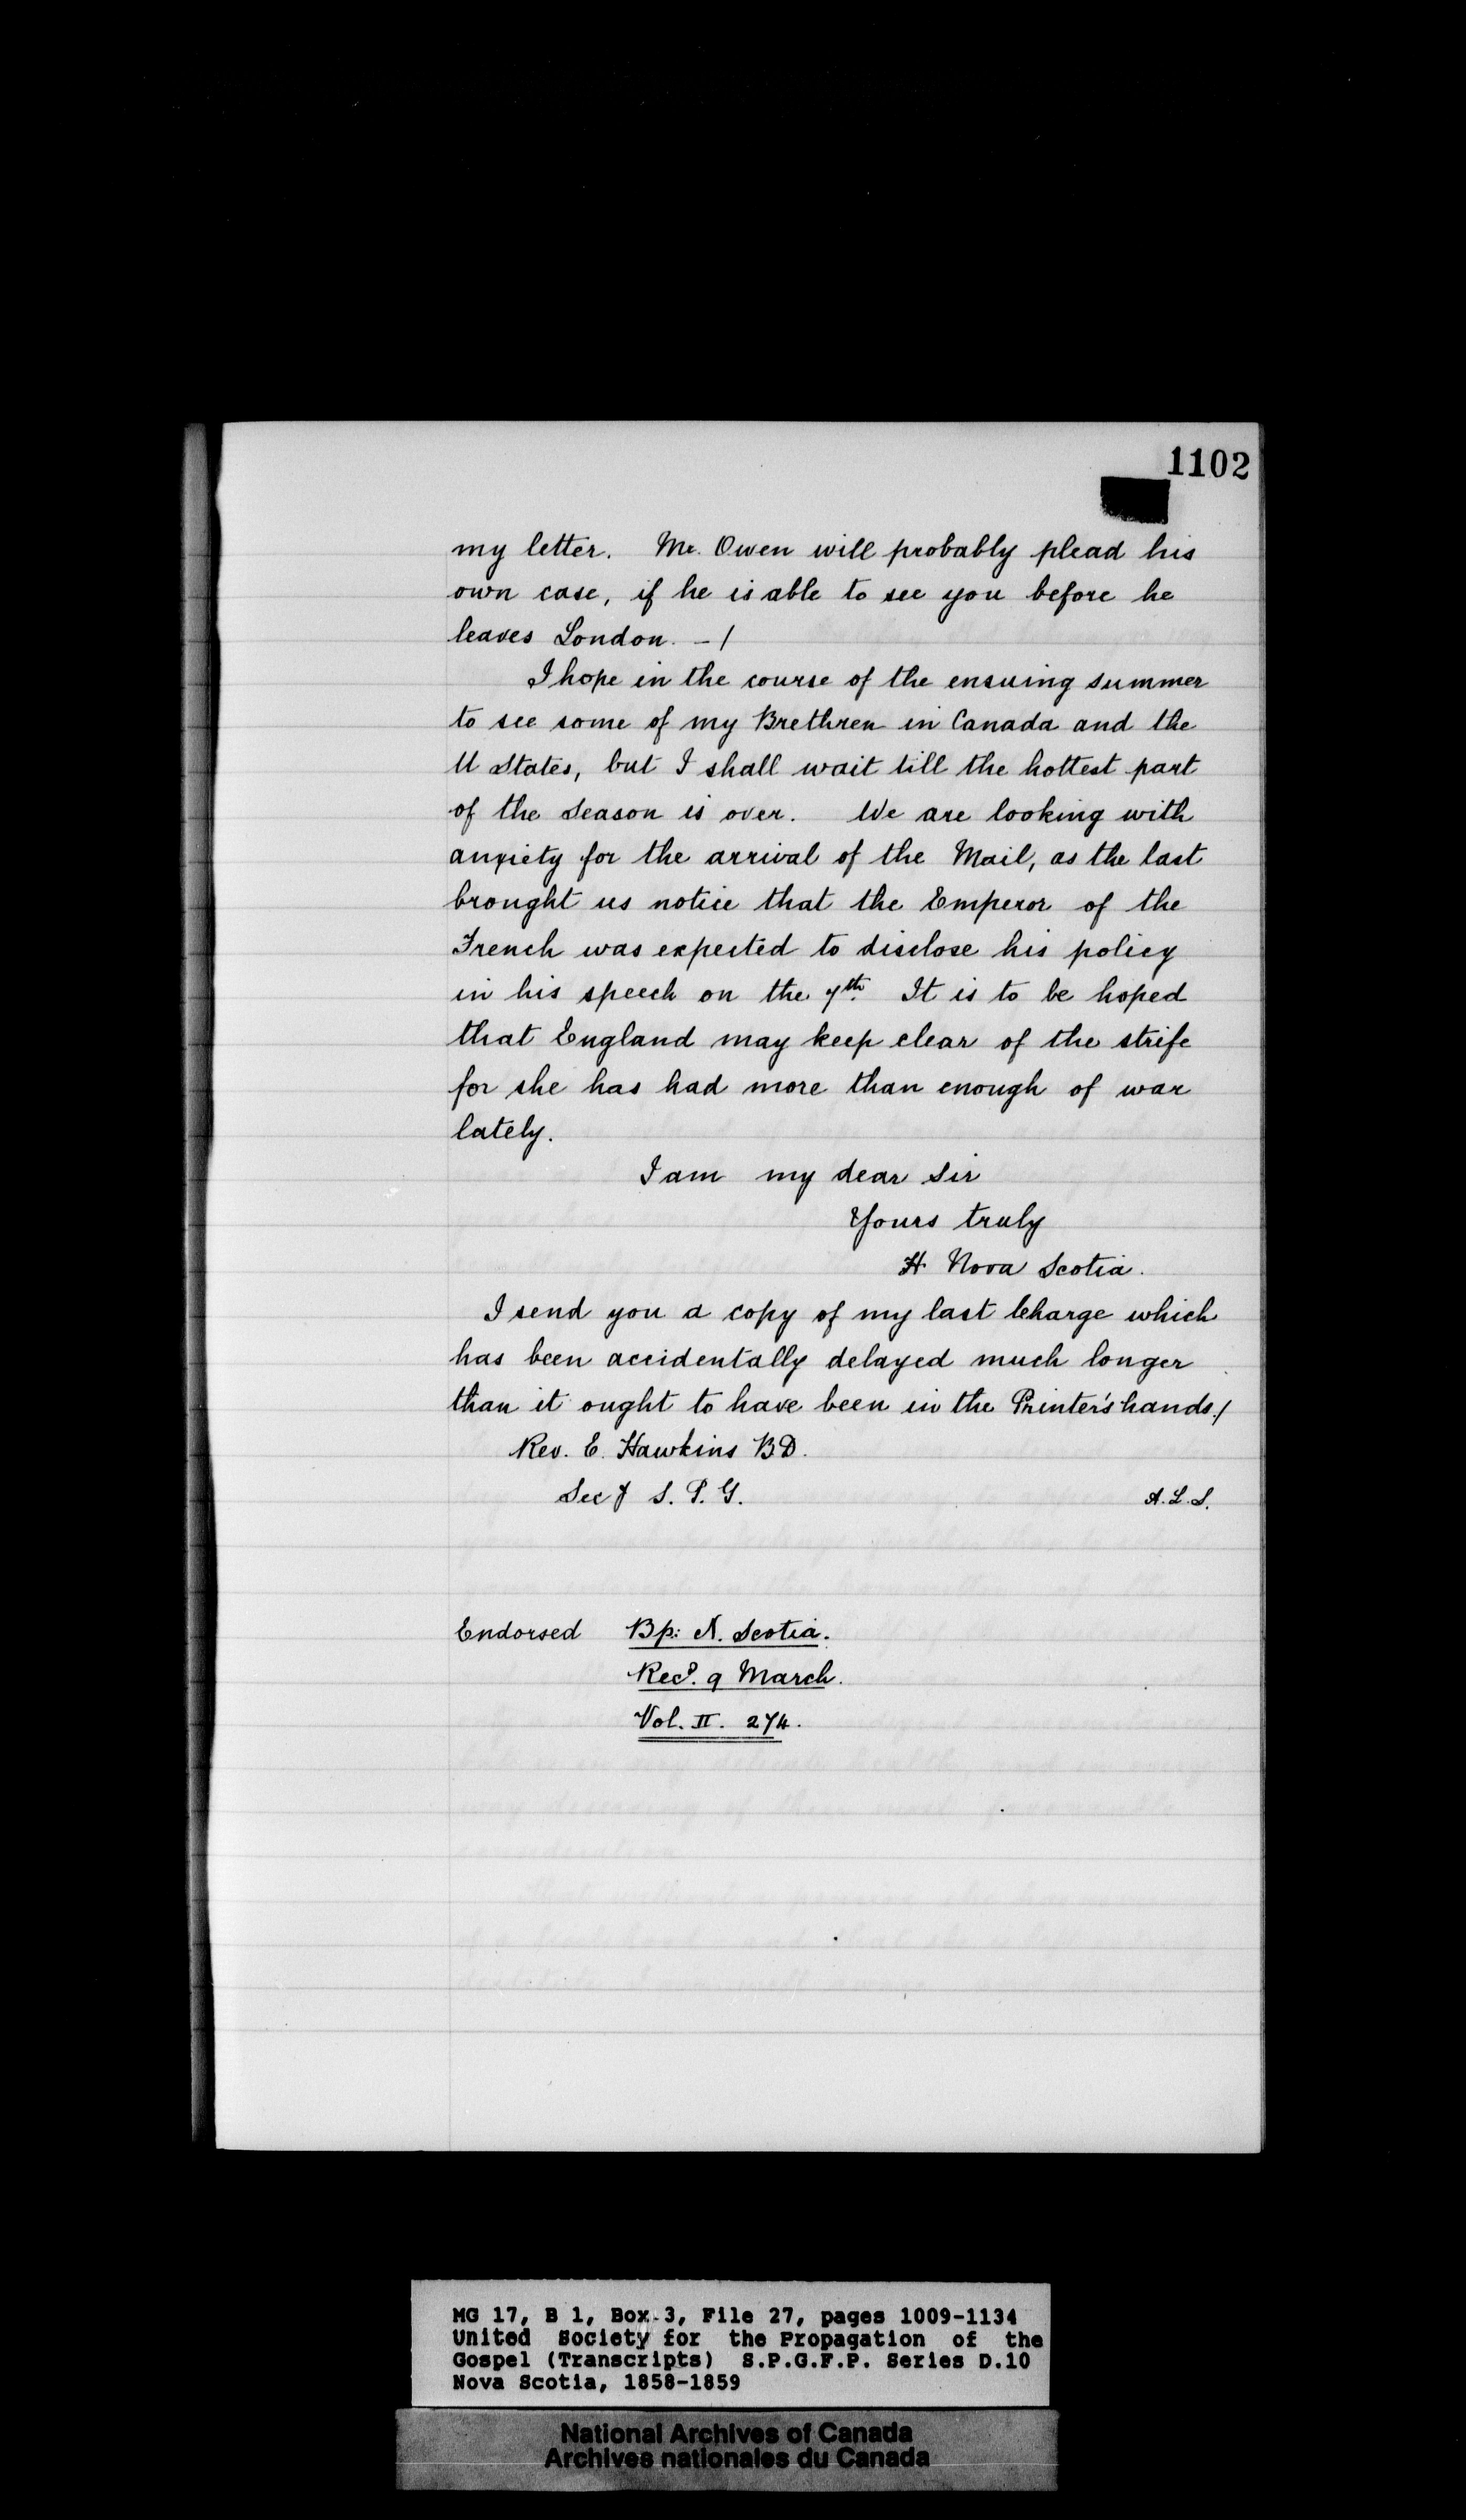 1102
my letter. Mr. Owen will probably plead his
own case, if he is able to see you before he
leaves London. - /
I hope in the course of the ensuing summer
to see some of my Brethren in Canada and the
U States, but I shall wait till the hottest part
of the Season is over. We are looking with
anxiety for the arrival of the Mail, as the last
brought us notice that the Emperor of the
French was expected to disclose his policy
in his speech on the 7th. It is to be hoped
that England may keep clear of the strife
for she has had more than enough of war
lately.
I am my dear Sir
Yours truly
H. Nova Scotia.
I send you a copy of my last Charge which
has been accidentally delayed much longer
than it ought to have been in the Printer's hands./
Rev. E. Hawkins BD.
Secy S. P. G.
A.L.S.
Endorsed Bp: N. Scotia.
Recd. 9 March.
Vol. II. 274.
MG 17, B 1, Box 3, File 27, pages 1009-1134
United Society for the Propagation of the
Gospel (Transcripts) S.P.G.F.P. Series D.10
Nova Scotia, 1858-1859
National Archives of Canada
Archives nationales du Canada